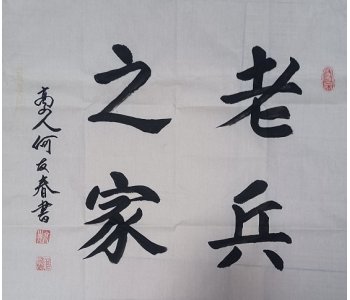 老兵
之家
高山人何友春書